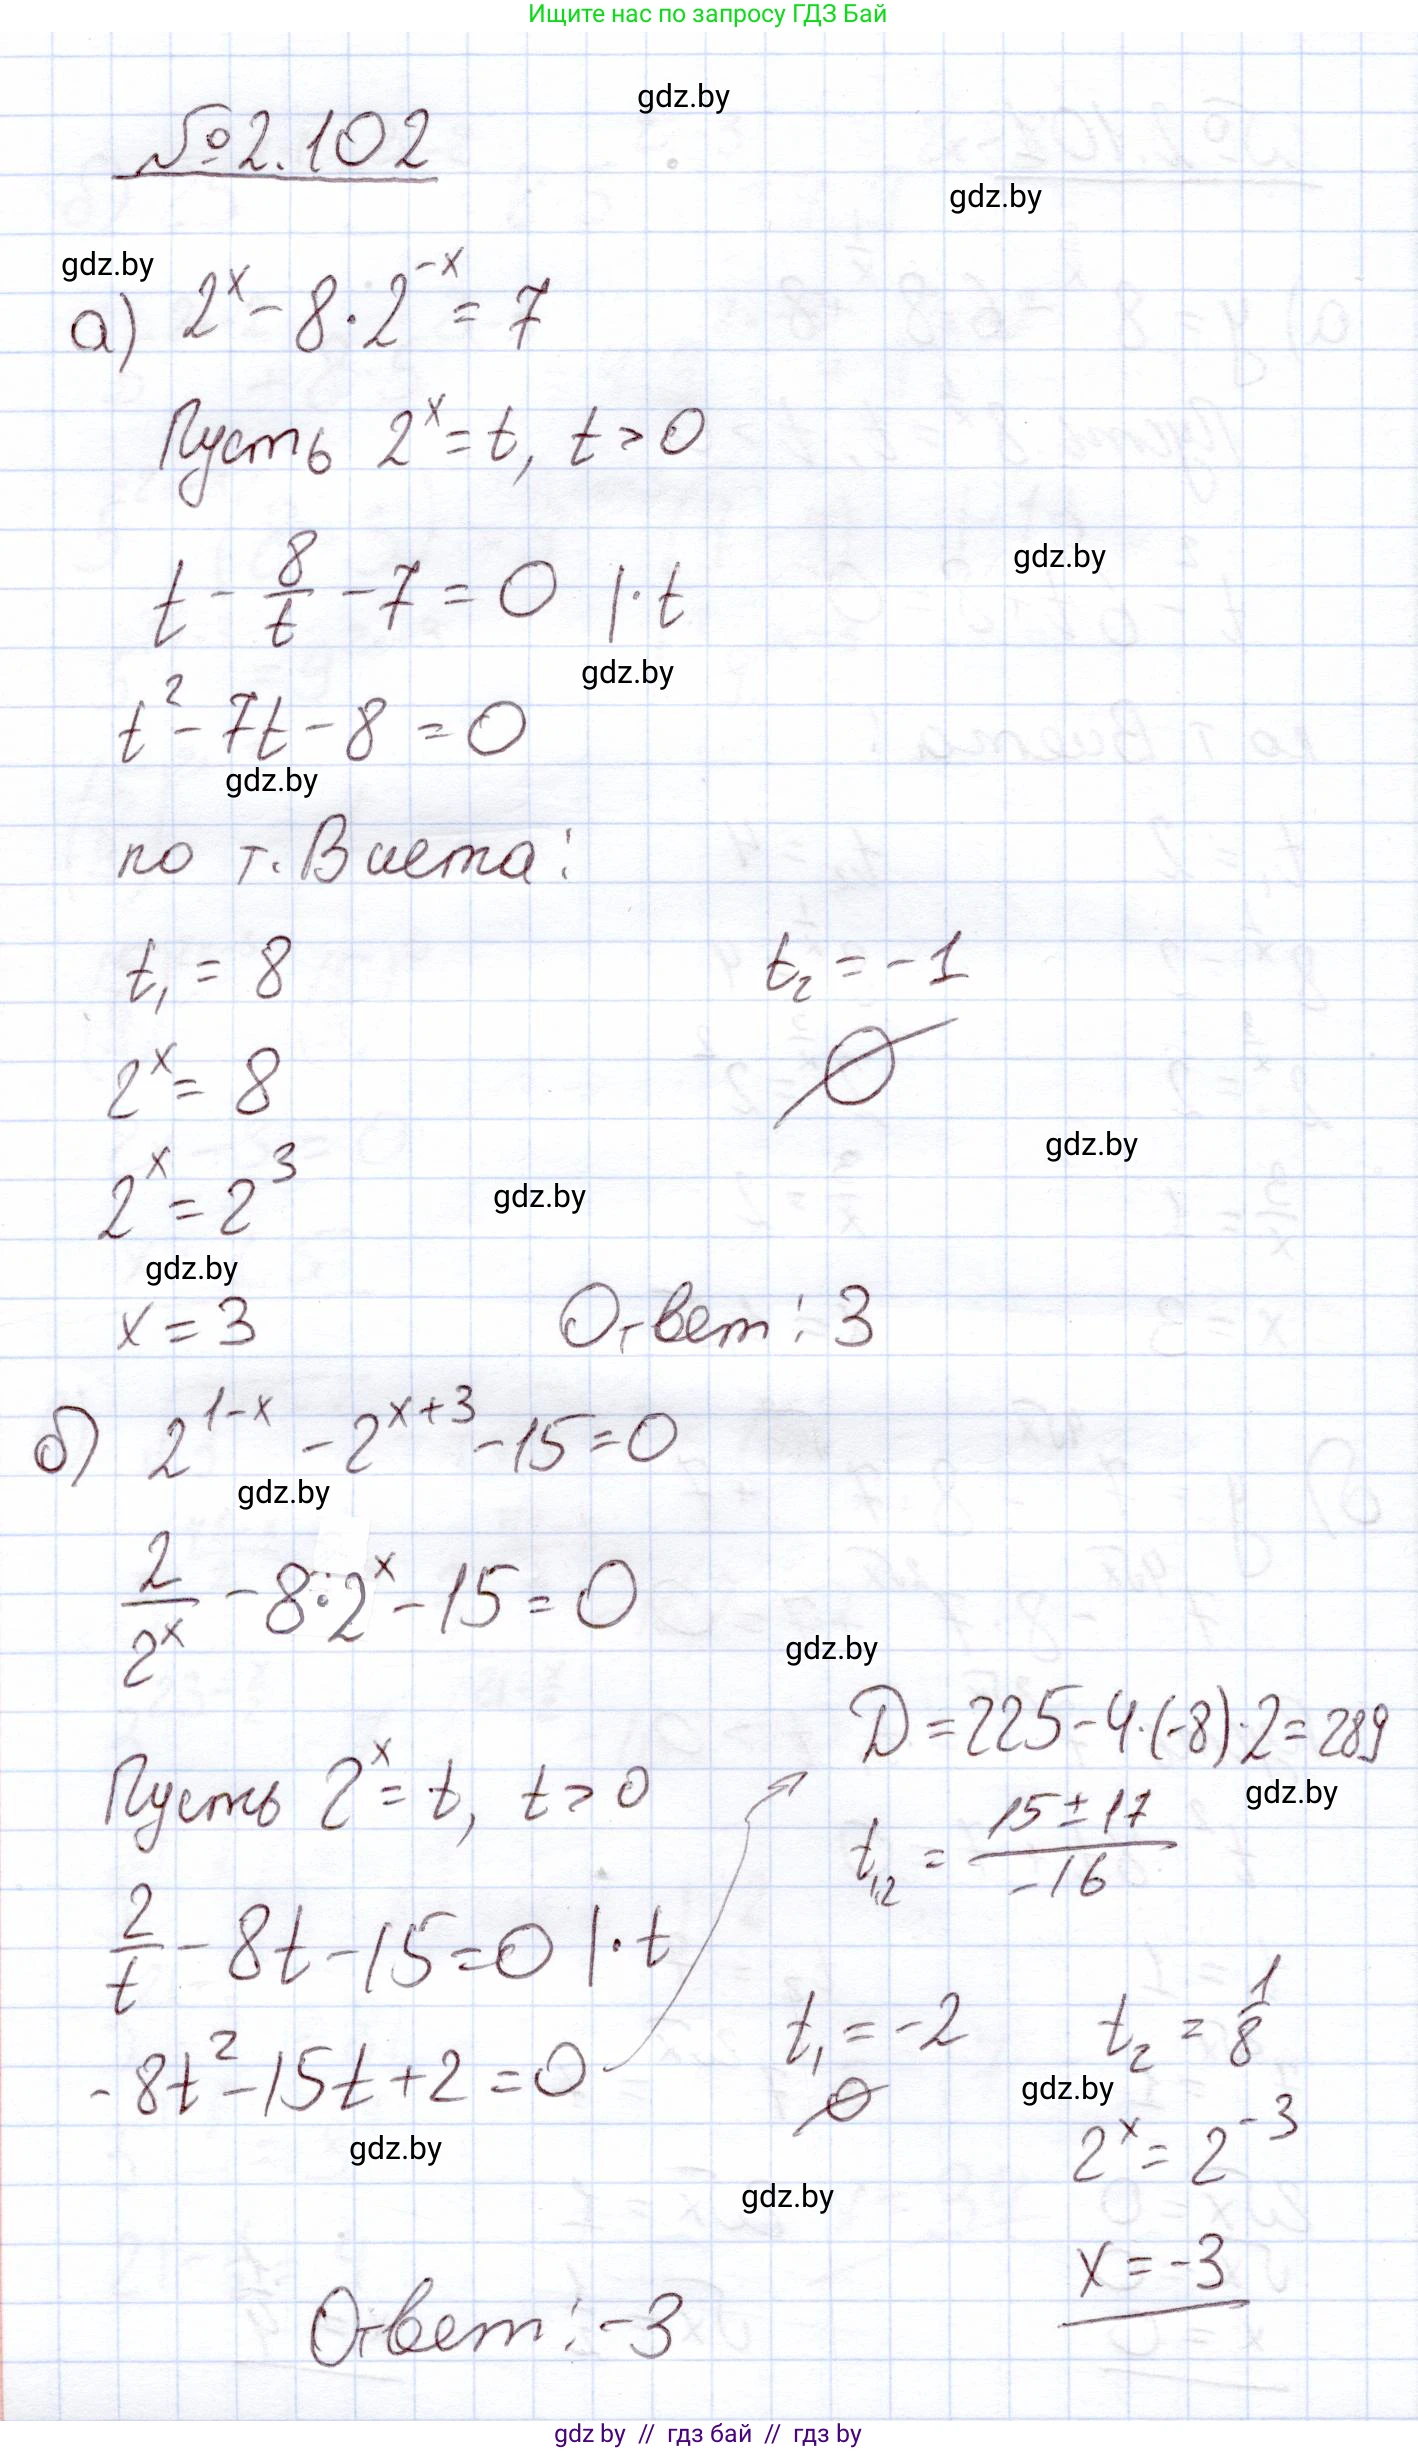 Ищите нас по запросу ГДЗ Бай
gdz.by
№2.102
gdz.by
gdz.by
а) 2^x - 8·2^{-x} = 7
Пусть 2^x = t, t > 0
t - 8/t - 7 = 0 |·t
gdz.by
gdz.by
t^2 - 7t - 8 = 0
gdz.by
по т. Виета:
t_1 = 8 t_2 = -1
2^x = 8 ∅
gdz.by
2^x = 2^3
gdz.by
gdz.by
x = 3 Ответ: 3
б) 2^{1-x} - 2^{x+3} - 15 = 0
gdz.by
2/2^x - 8·2^x - 15 = 0
gdz.by
Пусть 2^x = t, t > 0
2/t - 8t - 15 = 0 |·t
-8t^2 - 15t + 2 = 0
D = 225 - 4·(-8)·2 = 289
gdz.by
t_{1,2} = (15 ± 17)/(-16)
t_1 = -2 t_2 = 1/8
∅
gdz.by
2^x = 2^{-3}
gdz.by
gdz.by
x = -3
Ответ: -3
gdz by // гдз бай // гдз by